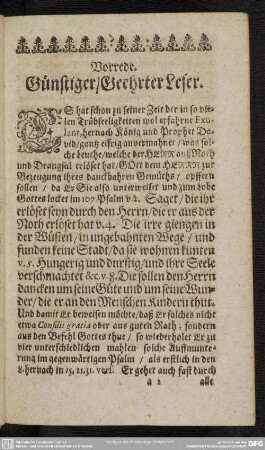 Vorrede.
Günstiger/Geehrter Leser.
ES hat schon zu seiner Zeit der in so vie-
len Trübseeligkeiten wol erfahrne Exu-
lant, hernach König und Prophet Da-
vid/gantz eifrig anvermahnet / was sol-
che Leuthe/welche der HERR auß Noth
und Drangsal erlöset hat/ GOtt dem HERRN zur
Bezeugung ihres danckbahren Gemüths / opffern
sollen / da Er Sie also unterweiset und zum Lobe
Gottes locket im 107 Psalm v 2. Saget / die ihr
erlöset seyn durch den Herrn/die er aus der
Noth erlöset hat v.4. Die irre giengen in
der Wüsten / in ungebahnten Wege / und
funden keine Stadt/da sie wohnen kunten
v. 5. Hungerig und durstig/und ihre Seele
verschmachtet &c. v. 8. Die sollen den Herrn
dancken um seine Güte und um seine Wun-
der/die er an den Menschen Kindern thut.
Und damit Er beweisen möchte/daß Er solches nicht
etwa Consilii gratia oder aus guten Rath; sondern
aus den Befehl Gottes thue / so wiederholet Er zu
vier unterschiedlichen mahlen solche Auffmunte-
rung im gegenwärtigen Psalm / als erstlich in den
8. hernach in 15. 21. 31. vers. Er gehet auch fast durch
a 2 alle